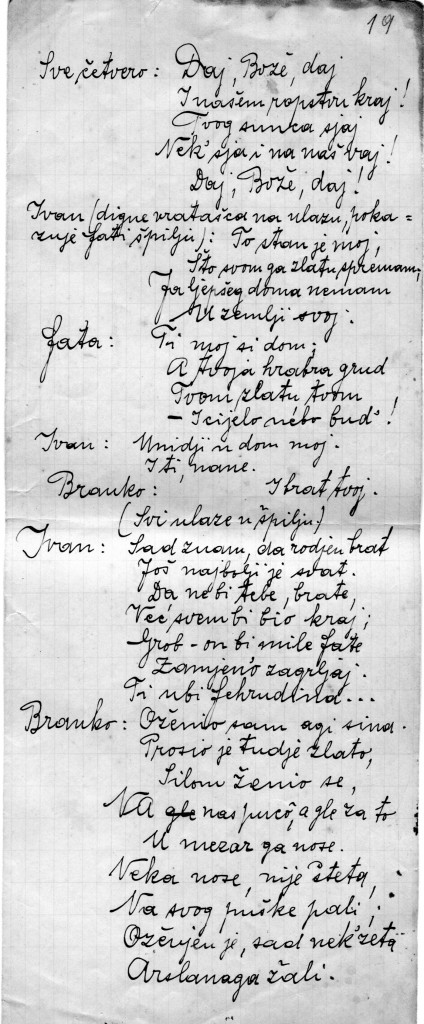 19
Sve četvero: Daj, Bože, daj
I našem ropstvu kraj!
Tvog sunca sjaj
Nek' sja i na naš vaj!
Daj, Bože, daj!
Ivan (digne vratašca na ulazu, poka=
zuje Fati špilju): To stan je moj,
Što svom ga zlatu spremam;
Ja ljepšeg doma nemam
U zemlji svoj.
Fata: Ti moj si dom;
A tvoja hrabra grud
Tvom zlatu tvom
– I cijelo nebo bud'!
Ivan: Unidji u dom moj.
I ti, nane.
Branko: I brat tvoj.
(Svi ulaze u špilju.)
Ivan: Sad znam, da rodjen brat
Još najbolji je svat.
Da ne bi tebe, brate,
Već svem bi bio kraj;
Grob - on bi mile Fate
Zamjen'o zagrljaj.
Ti ubi Fehrudina...
Branko: Oženio sam agi sina.
Prosio je tudje zlato,
Silom ženio se,
NA gle nas pucô, a gle za to
U mezar ga nose.
Neka nose, nije šteta,
Na svog puške pali;
Oženjen je, sad nek' zeta
Arslanaga žali.